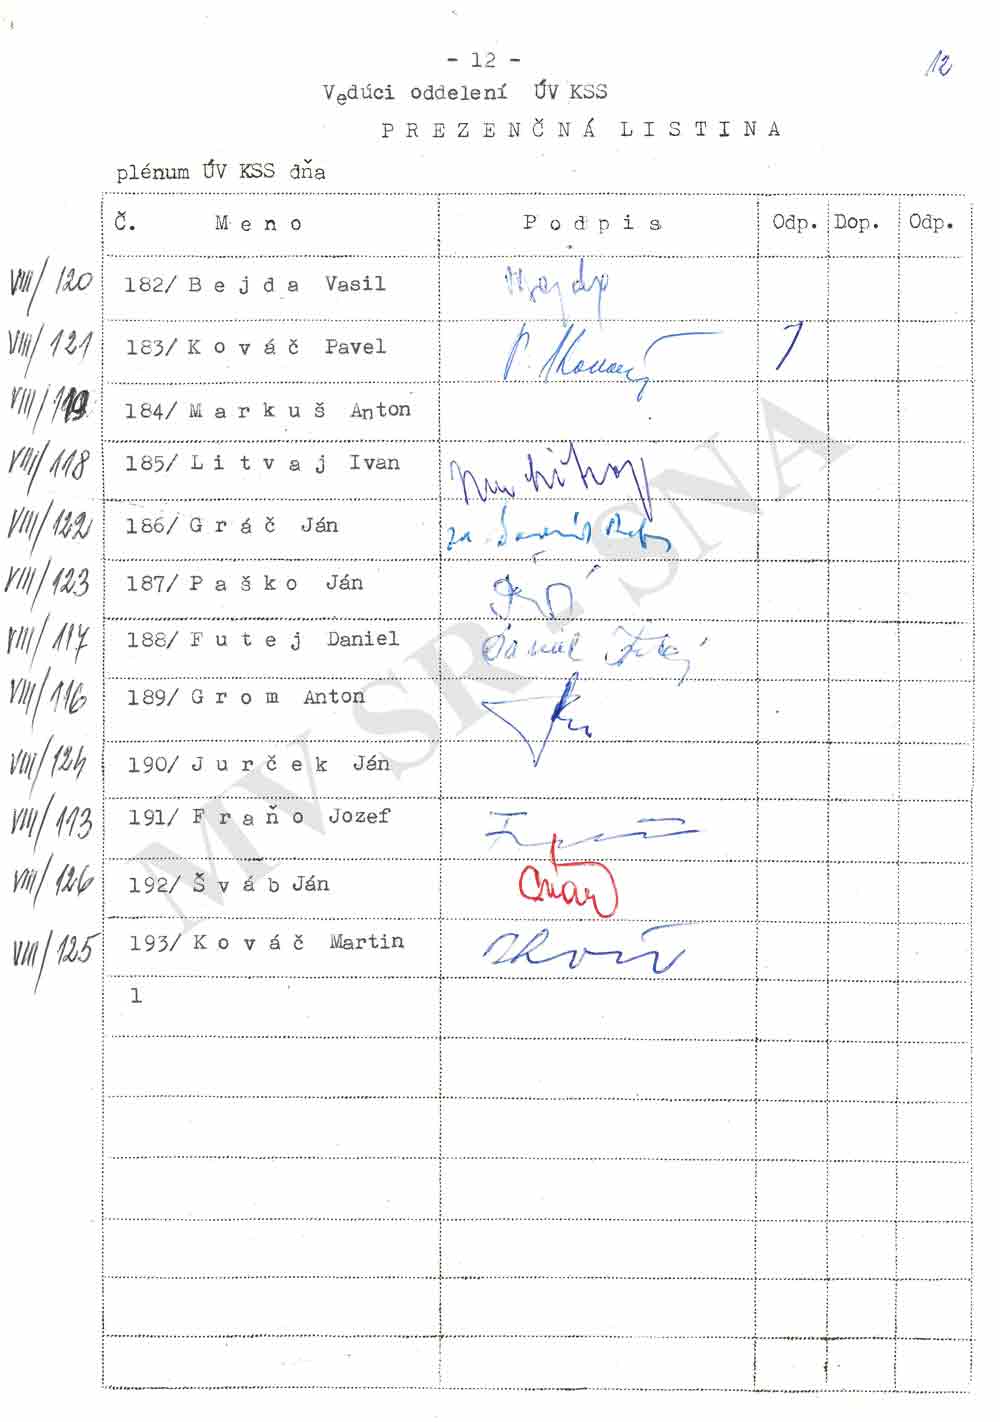 - 12 -
12
Vedúci oddelení ÚV KSS
PREZENČNÁ LISTINA
plénum ÚV KSS dňa
Č. Meno Podpis Odp. Dop. Odp.
VIII/120 182/ Bejda Vasil
VIII/121 183/ Kováč Pavel
VIII/119 184/ Markuš Anton
VIII/118 185/ Litvaj Ivan
VIII/122 186/ Gráč Ján za
VIII/123 187/ Paško Ján
VIII/117 188/ Futej Daniel Daniel Futej
VIII/116 189/ Grom Anton
VIII/124 190/ Jurček Ján
VIII/113 191/ Fraňo Jozef
VIII/126 192/ Šváb Ján
VIII/125 193/ Kováč Martin
1
MV SR - SNA